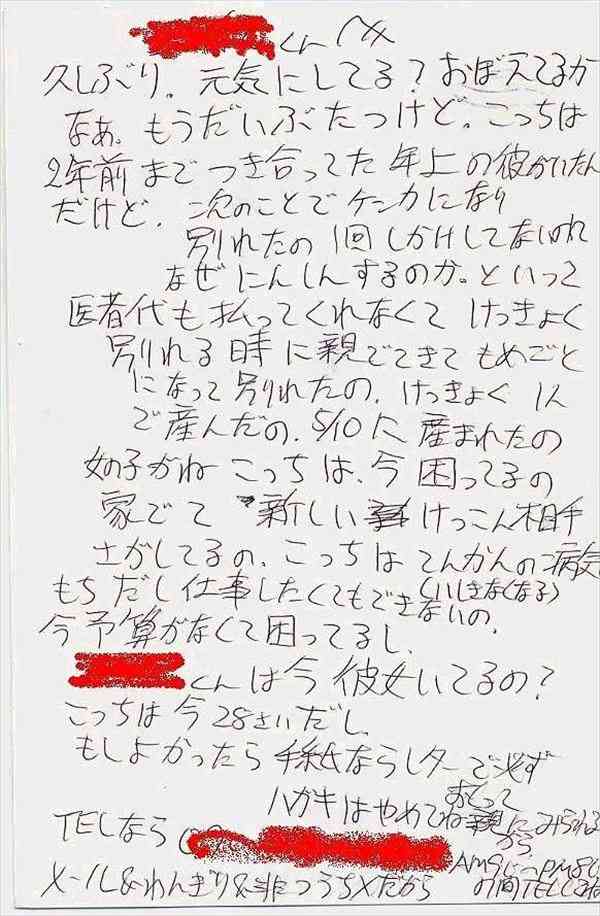 くんへ
久しぶり。元気にしてる?おぼえてるか
なぁ。もうだいぶたつけど。こっちは
2年前までつき合ってた年上の彼がいたん
だけど、次のことでケンカになり
別れたの1回しかけしてないのに
なぜにんしんするのか。といって
医者代も払ってくれなくてけっきょく
別れる時に親でてきてもめごと
になって別れたの、けっきょく1人
で産んだの。5/10に産まれたの
女の子がねこっちは、今困ってるの
家でて新しいけっこん相手
さがしてるの、こっちはてんかんの病気
もちだし仕事したくてもできないの、
(いしきなくなる)
今予算がなくて困ってるし、
くんは今彼女いてるの?
こっちは今28さいだし、
もしよかったら手紙ならレターで必ず
おくって
ハガキはやめてね親にみられる
から
TELなら
AM9じ〜PM8じ
メール&わんぎり&非つうち×だから
の間TEL